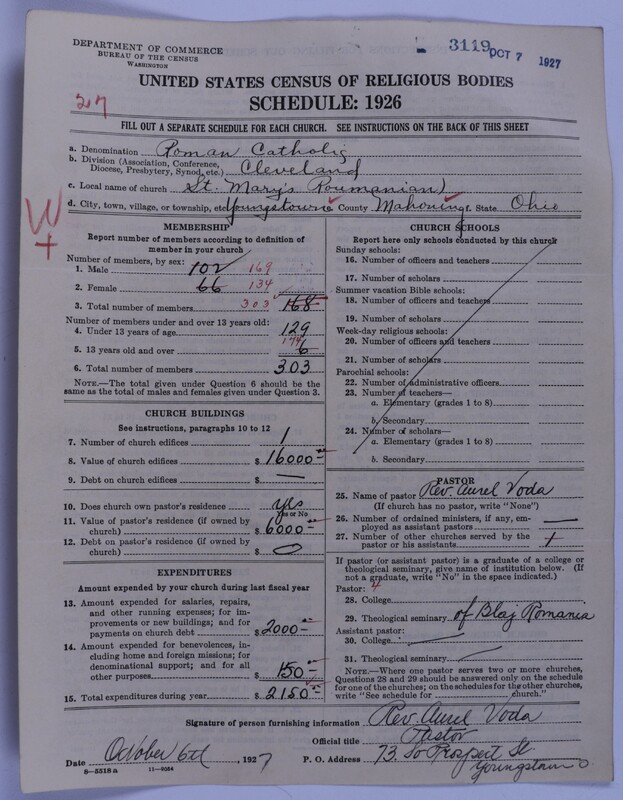 DEPARTMENT OF COMMERCE
BUREAU OF THE CENSUS
WASHINGTON
3119 OCT 7 1927
UNITED STATES CENSUS OF RELIGIOUS BODIES
SCHEDULE: 1926
FILL OUT A SEPARATE SCHEDULE FOR EACH CHURCH. SEE INSTRUCTIONS ON THE BACK OF THIS SHEET
a. Denomination Roman Catholic
b. Division (Association, Conference, Diocese, Presbytery, Synod, etc.) Cleveland
c. Local name of church St. Mary's Roumanian)
d. City, town, village, or township, etc. Youngstown e. County Mahoning f. State Ohio
W
+
MEMBERSHIP
Report number of members according to definition of
member in your church
Number of members, by sex:
1. Male 102 169
2. Female 66 134
3. Total number of members 303 168
Number of members under and over 13 years old:
4. Under 13 years of age 129
5. 13 years old and over 174 6
6. Total number of members 303
NOTE.—The total given under Question 6 should be
same as the total of males and females given under Question 3.
CHURCH BUILDINGS
See instructions, paragraphs 10 to 12
7. Number of church edifices 1
8. Value of church edifices $ 16000
9. Debt on church edifices $ —
10. Does church own pastor's residence yes
Yes or No
11. Value of pastor's residence (if owned by
church) $ 6000
12. Debt on pastor's residence (if owned by
church) $ 0
EXPENDITURES
Amount expended by your church during last fiscal year
13. Amount expended for salaries, repairs,
and other running expenses; for im-
provements or new buildings; and for
payments on church debt $ 2000
14. Amount expended for benevolences, in-
cluding home and foreign missions; for
denominational support; and for all
other purposes $ 150
15. Total expenditures during year $ 2150
CHURCH SCHOOLS
Report here only schools conducted by this church
Sunday schools:
16. Number of officers and teachers
17. Number of scholars
Summer vacation Bible schools:
18. Number of officers and teachers
19. Number of scholars
Week-day religious schools:
20. Number of officers and teachers
21. Number of scholars
Parochial schools:
22. Number of administrative officers
23. Number of teachers—
a. Elementary (grades 1 to 8)
b. Secondary
24. Number of scholars—
a. Elementary (grades 1 to 8)
b. Secondary
PASTOR
25. Name of pastor Rev. Aurel Voda
(If church has no pastor, write "None")
26. Number of ordained ministers, if any, em-
ployed as assistant pastors —
27. Number of other churches served by the
pastor or his assistants
If pastor (or assistant pastor) is a graduate of a college or
theological seminary, give name of institution below. (If
not a graduate, write "No" in the space indicated.)
Pastor: 4
28. College
29. Theological seminary of Blaj Romania
Assistant pastor:
30. College
31. Theological seminary
NOTE.—Where one pastor serves two or more churches,
Questions 28 and 29 should be answered only on the schedule
for one of the churches; on the schedules for the other churches,
write "See schedule for church."
Signature of person furnishing information Rev. Aurel Voda
Official title Pastor
Date October 6th, 1927 P. O. Address 73. So Prospect St
Youngstown O.
8—5518a 11—4054